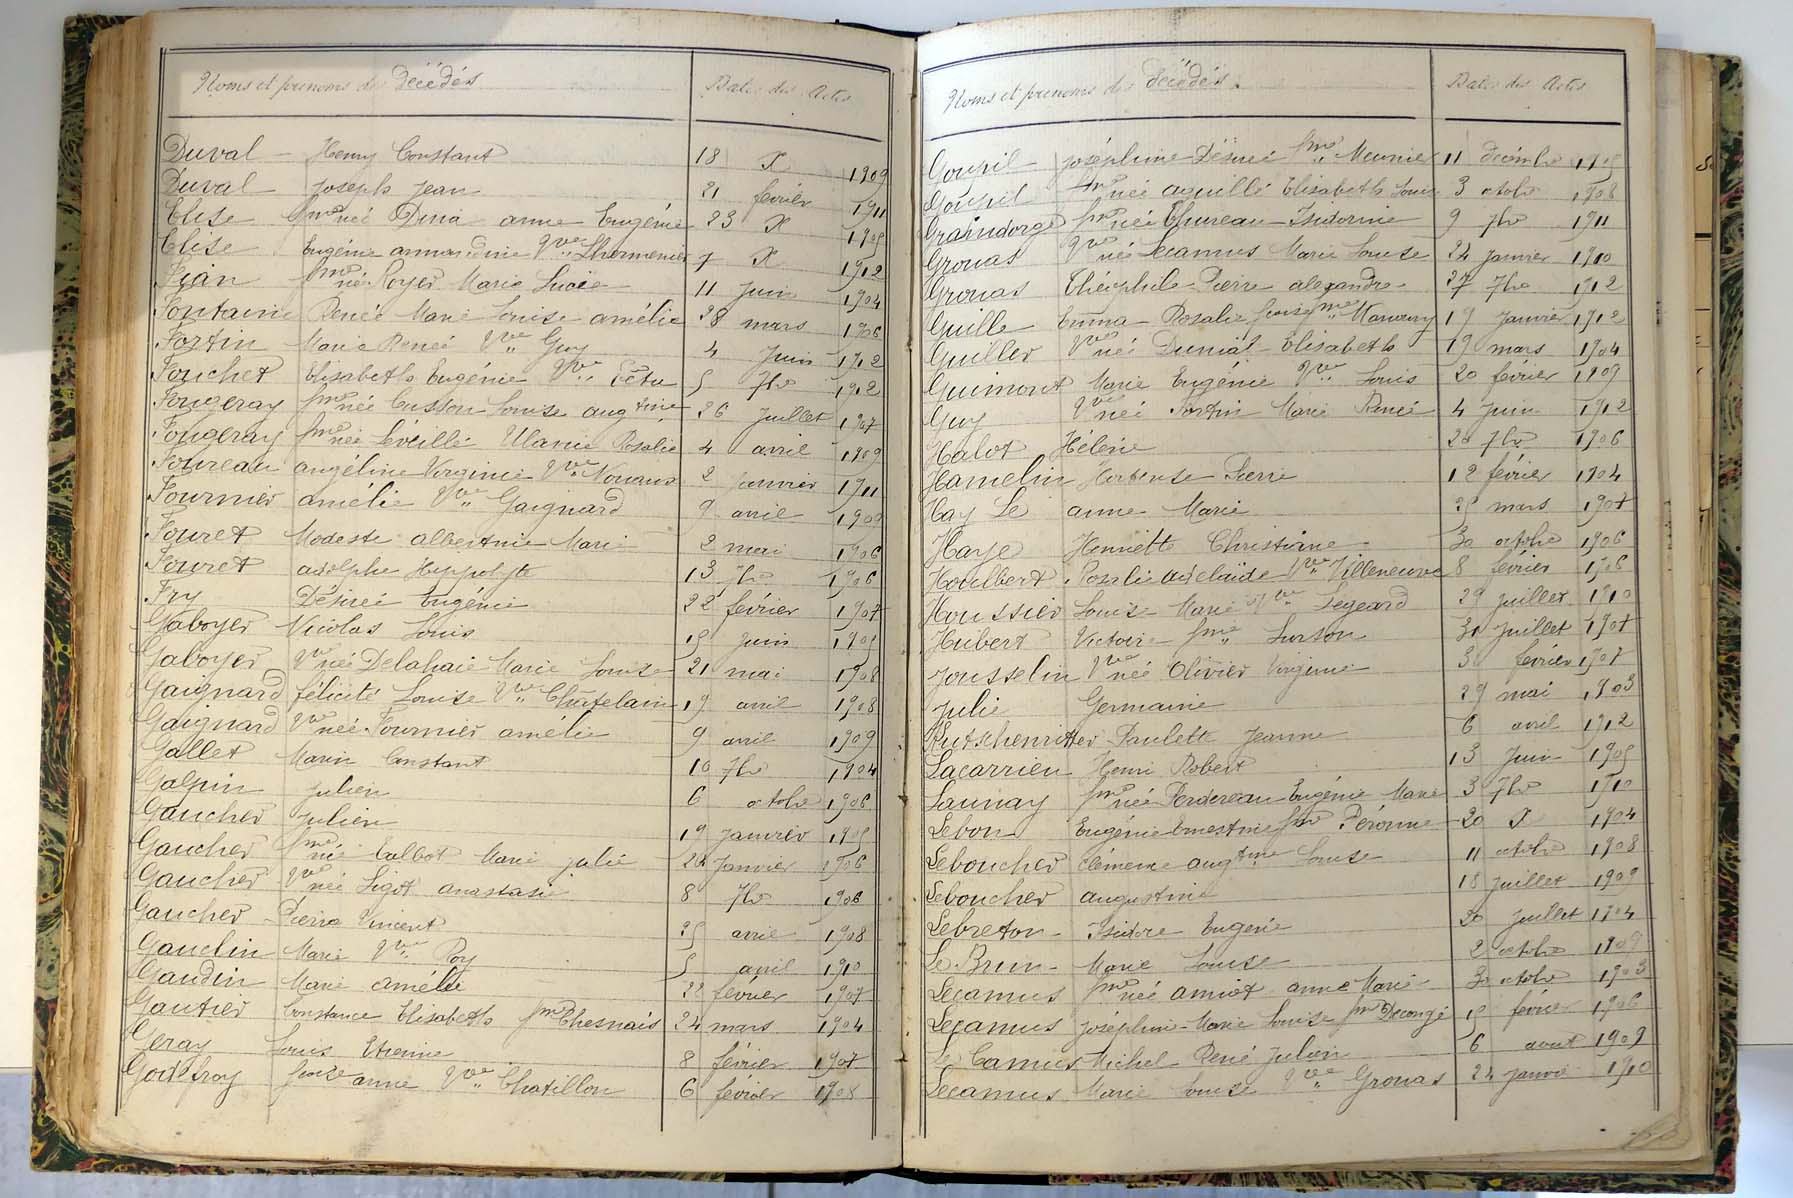 Noms et prénoms des Décédés Dates des Actes
Duval Henry Constant 18 X 1909
Duval Joseph Jean 21 février 1911
Elise fme née Dina anne Eugénie 23 X 1905
Elise Eugénie armandine Vve Lhermenier 7 X 1912
Fián fme née Royer Marie Lucie 11 juin 1904
Fontaine Renée Marie Louise amélie 28 mars 1906
Fortin Marie Renée Vve Guy 4 Juin 1912
Fouchet Elisabeth Eugénie Vve Tétu 5 7bre 1912
Fougeray fme née Cusson Louise augtine 26 Juillet 1907
Fougeray fme née Léveillé Ulanie Rosalie 4 avril 1909
Foureau angéline Virginie Vve Nouaus 2 janvier 1911
Fournier amélie Vve Gaignard 9 avril 1909
Fouret Modeste albertine Marie 2 mai 1906
Fouret adolphe Hippolyte 13 7bre 1906
Fry Désirée Eugénie 22 février 1907
Gaboyer Nicolas Louis 15 juin 1905
Gaboyer Vve née Delahaie Marie Louise 21 mai 1908
Gaignard félicité Louise Vve Chatelain 19 avril 1908
Gaignard Vve née Fournier amélie 9 avril 1909
Gallet Marin Constant 10 7bre 1904
Galpin julien 6 octobre 1906
Gaucher julien 19 janvier 1905
Gaucher fme née Calbot Marie julie 24 Janvier 1906
Gaucher Vve née Ligot anastasie 8 7bre 1906
Gaucher Pierre Vincent 25 avril 1908
Gaudin Marie Vve Roy 5 avril 1910
Gaudin Marie amélie 22 février 1907
Gautier Constance Elisabeth fme Chesnais 24 mars 1904
Geray Louis Etienne 8 février 1907
Godefroy fçoise anne Vve Chatillon 6 février 1908
Noms et prénoms des décédés Dates des Actes
Goupil joséphine Désirée fme Meunier 11 décembre 1905
Goupil fme née aguillé Elisabeth Louise 3 octobre 1908
Graindorge fme née Thureau Isidorine 9 7bre 1911
Grouas Vve née Lecamus Marie Louise 24 janvier 1910
Grouas Théophile Pierre alexandre 27 7bre 1912
Guille Emma Rosalie fçoise fme Manoury 19 janvier 1912
Guiller Vve née Duniat Elisabeth 19 mars 1904
Guimont Marie Eugénie Vve Louis 20 février 1909
Guy Vve née Fortin Marie Renée 4 juin 1912
Halot Hélène 20 7bre 1906
Hamelin Hortense Pierre 12 février 1904
Hay Le anne Marie 25 mars 1907
Haye Henriette Christine 30 octobre 1906
Houlbert Rosalie adelaïde Vve Villeneuve 8 février 1906
Houssier Louise Marie Vve Legeard 29 juillet 1910
Hubert Victoire fme Surson 30 Juillet 1907
Jousselin Vve née Olivier Virginie 3 février 1907
Julie Germaine 29 mai 1903
Kutschenritter Paulette Jeanne 6 avril 1912
Lacarrieu Henri Robert 13 Juin 1905
Launay fme née Perdereau Eugénie Marie 3 7bre 1910
Lebon Eugénie Ernestine fme Péronne 20 X 1904
Leboucher clémence augtine Louise 11 octobre 1908
Leboucher augustine 18 juillet 1909
Lebreton Isidore Eugène 20 juillet 1904
Le Brun Marie Louise 2 octobre 1909
Lecamus fme née amiot anne Marie 30 octobre 1903
Lecamus joséphine Marie Louise fme Decongé 15 février 1906
Le Camus Michel René Julien 6 aout 1909
Lecamus Marie Louise Vve Grouas 24 janvier 1910